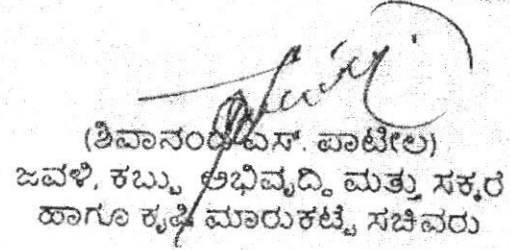 (ಶಿವಾನಂದ ಎಸ್. ಪಾಟೀಲ)
ಜವಳಿ, ಕಬ್ಬು ಅಭಿವೃದ್ಧಿ ಮತ್ತು ಸಕ್ಕರೆ
ಹಾಗೂ ಕೃಷಿ ಮಾರುಕಟ್ಟೆ ಸಚಿವರು